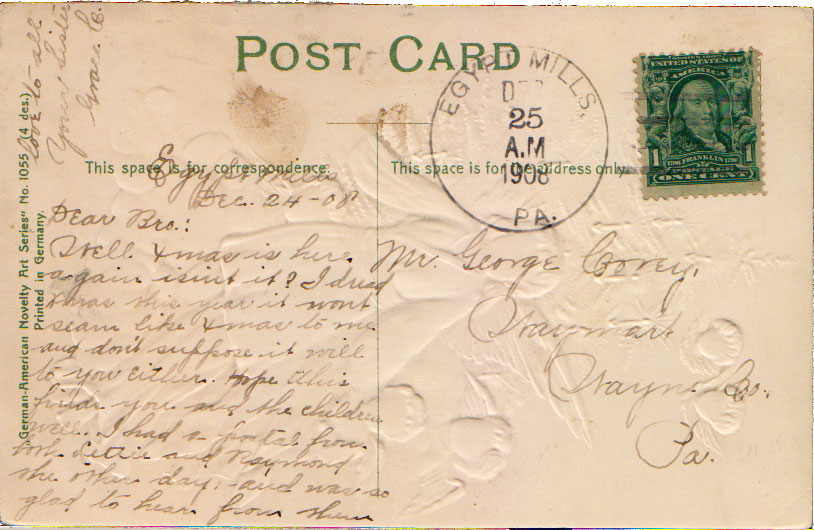 POST CARD
This space is for correspondence.
This space is for the address only
EGYPT MILLS,
DEC
25
A.M
1908
PA.
UNITED STATES OF
AMERICA
1 FRANKLIN 1
POSTAGE
ONE CENT
"German-American Novelty Art Series" No. 1055 (4 des.)
Printed in Germany.
Egypt Mills
Dec. 24-08
Dear Bro.:
Well Xmas is here
again isint it? I dread
Xmas this year it wont
seam like Xmas to me
and don't suppose it will
to you either. Hope this
finds you and the children
well. I had a postal from
both Lettie and Raymond
the other day, and was so
glad to hear from them
Love to all
Your Sister
Grace C.
Mr. George Corey,
Waymart
Wayne Co.,
Pa.